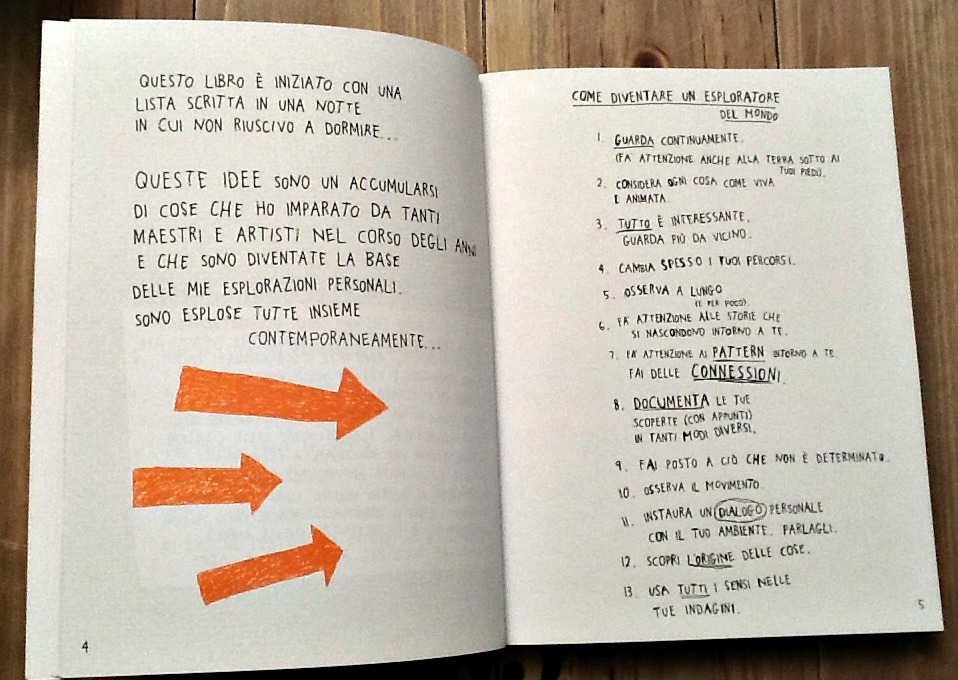 QUESTO LIBRO È INIZIATO CON UNA
LISTA SCRITTA IN UNA NOTTE
IN CUI NON RIUSCIVO A DORMIRE...
QUESTE IDEE SONO UN ACCUMULARSI
DI COSE CHE HO IMPARATO DA TANTI
MAESTRI E ARTISTI NEL CORSO DEGLI ANNI
E CHE SONO DIVENTATE LA BASE
DELLE MIE ESPLORAZIONI PERSONALI.
SONO ESPLOSE TUTTE INSIEME
CONTEMPORANEAMENTE...
4
COME DIVENTARE UN ESPLORATORE
DEL MONDO
1. GUARDA CONTINUAMENTE.
(FA' ATTENZIONE ANCHE ALLA TERRA SOTTO AI
TUOI PIEDI).
2. CONSIDERA OGNI COSA COME VIVA
E ANIMATA.
3. TUTTO È INTERESSANTE.
GUARDA PIÙ DA VICINO.
4. CAMBIA SPESSO I TUOI PERCORSI.
5. OSSERVA A LUNGO
(E PER POCO).
6. FA' ATTENZIONE ALLE STORIE CHE
SI NASCONDONO INTORNO A TE.
7. FA' ATTENZIONE AI PATTERN INTORNO A TE.
FAI DELLE CONNESSIONI.
8. DOCUMENTA LE TUE
SCOPERTE (CON APPUNTI)
IN TANTI MODI DIVERSI.
9. FAI POSTO A CIÒ CHE NON È DETERMINATO.
10. OSSERVA IL MOVIMENTO.
11. INSTAURA UN DIALOGO PERSONALE
CON IL TUO AMBIENTE. PARLAGLI.
12. SCOPRI L'ORIGINE DELLE COSE.
13. USA TUTTI I SENSI NELLE
TUE INDAGINI.
5